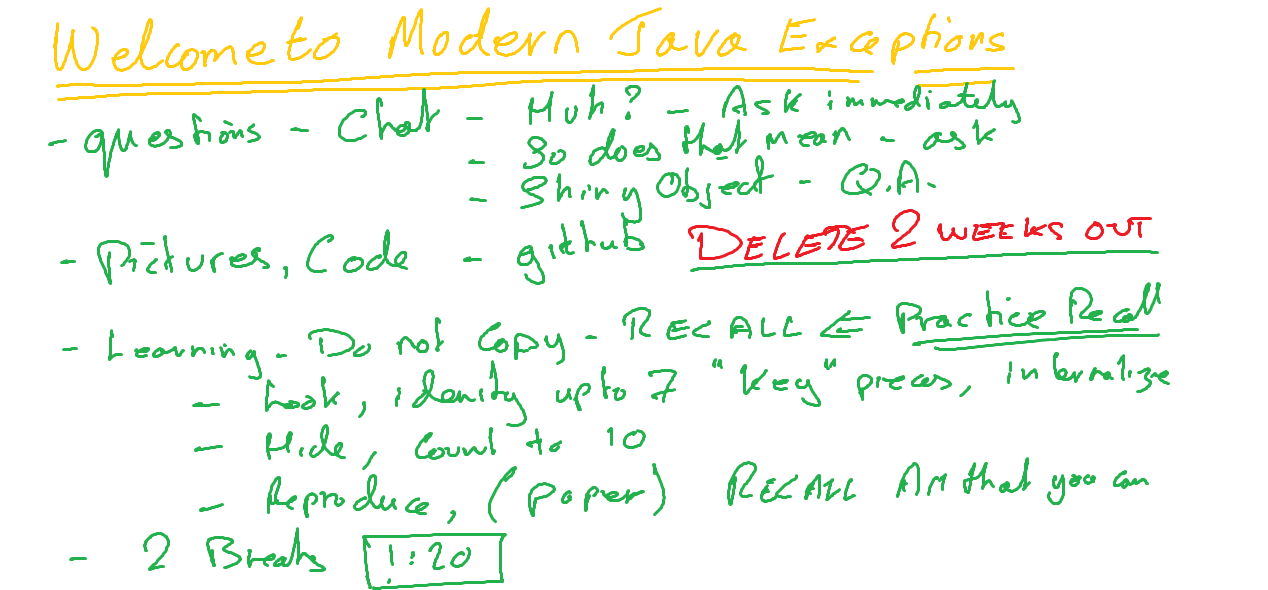 Welcome to Modern Java Exceptions
- questions - Chat - Huh? - Ask immediately
- So does that mean - ask
- Shiny Object - Q.A.
- Pictures, Code - github DELETE 2 WEEKS OUT
- Learning - Do not Copy - RECALL <= Practice Recall
- Look, idenity up to 7 "Key" pieces, internalize
- Hide, Count to 10
- Reproduce, (Paper) RECALL All that you can
- 2 Breaks 1:20